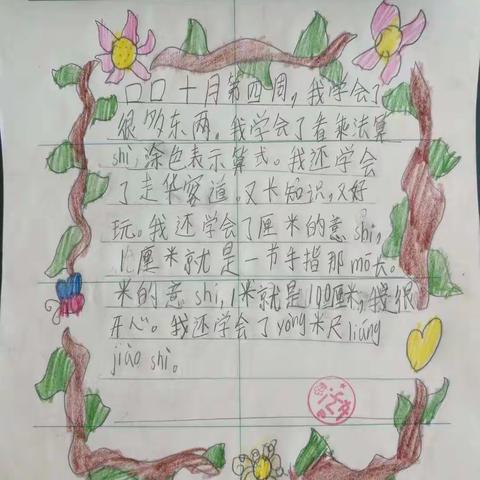 口口十月第四周，我学会了
很多东西。我学会了看乘法算
shì，涂色表示算式。我还学会
了走华容道，又长知识，又好
玩。我还学会了厘米的意shi，
1厘米就是一节手指那mō长。
米的意shi，1米就是100厘米，我很
开心。我还学会了yòng米尺liáng
jiào shì。